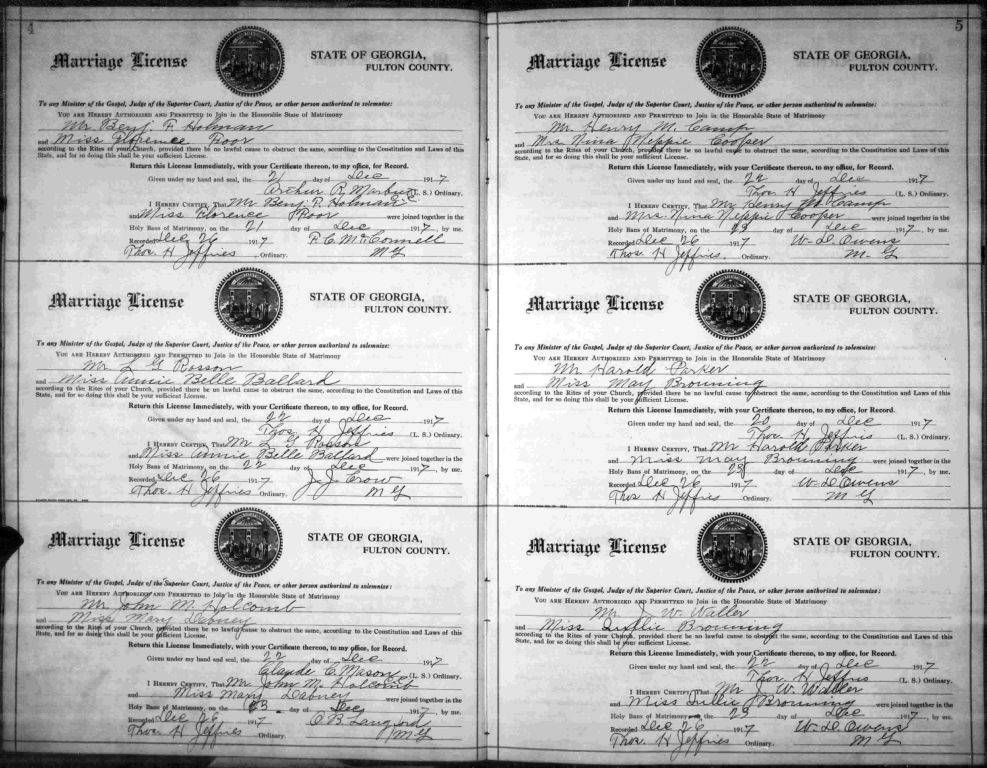 4
Marriage License
STATE OF GEORGIA,
FULTON COUNTY.
To any Minister of the Gospel, Judge of the Superior Court, Justice of the Peace, or other person authorized to solemnize:
YOU ARE HEREBY AUTHORIZED AND PERMITTED to Join in the Honorable State of Matrimony
Mr. Benj. F. Holman
and Miss Florence Poor
according to the Rites of your Church, provided there be no lawful cause to obstruct the same, according to the Constitution and Laws of this
State, and for so doing this shall be your sufficient License.
Return this License Immediately, with your Certificate thereon, to my office, for Record.
Given under my hand and seal, the 21 day of Dec 1917
Arthur R. (L. S.) Ordinary.
I HEREBY CERTIFY, That Mr Benj. F. Holman
and Miss Florence Poor were joined together in the
Holy Bans of Matrimony, on the 21 day of Dec 1917, by me.
Recorded Dec 26 1917 P. C. McConnell
Thos. H Jeffries Ordinary. M G
Marriage License
STATE OF GEORGIA,
FULTON COUNTY.
To any Minister of the Gospel, Judge of the Superior Court, Justice of the Peace, or other person authorized to solemnize:
YOU ARE HEREBY AUTHORIZED AND PERMITTED to Join in the Honorable State of Matrimony
Mr L G Rosson
and Miss Annie Belle Ballard
according to the Rites of your Church, provided there be no lawful cause to obstruct the same, according to the Constitution and Laws of this
State, and for so doing this shall be your sufficient License.
Return this License Immediately, with your Certificate thereon, to my office, for Record.
Given under my hand and seal, the 22 day of Dec 1917
Thos. H Jeffries (L. S.) Ordinary.
I HEREBY CERTIFY, That Mr L G Rosson
and Miss Annie Belle Ballard were joined together in the
Holy Bans of Matrimony, on the 22 day of Dec 1917, by me.
Recorded Dec 26 1917 J. J. Crow
Thos. H Jeffries Ordinary. M G
Marriage License
STATE OF GEORGIA,
FULTON COUNTY.
To any Minister of the Gospel, Judge of the Superior Court, Justice of the Peace, or other person authorized to solemnize:
YOU ARE HEREBY AUTHORIZED AND PERMITTED to Join in the Honorable State of Matrimony
Mr John M. Holcomb
and Miss Mary Dabney
according to the Rites of your Church, provided there be no lawful cause to obstruct the same, according to the Constitution and Laws of this
State, and for so doing this shall be your sufficient License.
Return this License Immediately, with your Certificate thereon, to my office, for Record.
Given under my hand and seal, the 22 day of Dec 1917
Claude C. Mason (L. S.) Ordinary.
I HEREBY CERTIFY, That Mr John M. Holcomb
and Miss Mary Dabney were joined together in the
Holy Bans of Matrimony, on the 23 day of Dec 1917, by me.
Recorded Dec 26 1917 C. B. Langford
Thos. H Jeffries Ordinary. M G
5
Marriage License
STATE OF GEORGIA,
FULTON COUNTY.
To any Minister of the Gospel, Judge of the Superior Court, Justice of the Peace, or other person authorized to solemnize:
YOU ARE HEREBY AUTHORIZED AND PERMITTED to Join in the Honorable State of Matrimony
Mr. Henry M. Camp
and Mrs Nina Neppie Cooper
according to the Rites of your Church, provided there be no lawful cause to obstruct the same, according to the Constitution and Laws of this
State, and for so doing this shall be your sufficient License.
Return this License Immediately, with your Certificate thereon, to my office, for Record.
Given under my hand and seal, the 22 day of Dec 1917
Thos. H Jeffries (L. S.) Ordinary.
I HEREBY CERTIFY, That Mr Henry M Camp
and Mrs Nina Neppie Cooper were joined together in the
Holy Bans of Matrimony, on the 23 day of Dec 1917, by me.
Recorded Dec 26 1917 W. D. Owens
Thos. H Jeffries. Ordinary. M. G
Marriage License
STATE OF GEORGIA,
FULTON COUNTY.
To any Minister of the Gospel, Judge of the Superior Court, Justice of the Peace, or other person authorized to solemnize:
YOU ARE HEREBY AUTHORIZED AND PERMITTED to Join in the Honorable State of Matrimony
Mr Harold Parker
and Miss May Browning
according to the Rites of your Church, provided there be no lawful cause to obstruct the same, according to the Constitution and Laws of this
State, and for so doing this shall be your sufficient License.
Return this License Immediately, with your Certificate thereon, to my office, for Record.
Given under my hand and seal, the 20 day of Dec 1917
Thos. H Jeffries (L. S.) Ordinary.
I HEREBY CERTIFY, That Mr Harold Parker
and Miss May Browning were joined together in the
Holy Bans of Matrimony, on the 23 day of Dec 1917, by me.
Recorded Dec 26 1917 W. D. Owens
Thos H Jeffries Ordinary. M G
Marriage License
STATE OF GEORGIA,
FULTON COUNTY.
To any Minister of the Gospel, Judge of the Superior Court, Justice of the Peace, or other person authorized to solemnize:
YOU ARE HEREBY AUTHORIZED AND PERMITTED to Join in the Honorable State of Matrimony
Mr J W Waller
and Miss Browning
according to the Rites of your Church, provided there be no lawful cause to obstruct the same, according to the Constitution and Laws of this
State, and for so doing this shall be your sufficient License.
Return this License Immediately, with your Certificate thereon, to my office, for Record.
Given under my hand and seal, the 22 day of Dec 1917
Thos. H Jeffries (L. S.) Ordinary.
I HEREBY CERTIFY, That Mr J. W. Waller
and Miss Browning were joined together in the
Holy Bans of Matrimony, on the 23 day of Dec 1917, by me.
Recorded Dec 26 1917 W. D. Owens
Thos. H Jeffries Ordinary. M G